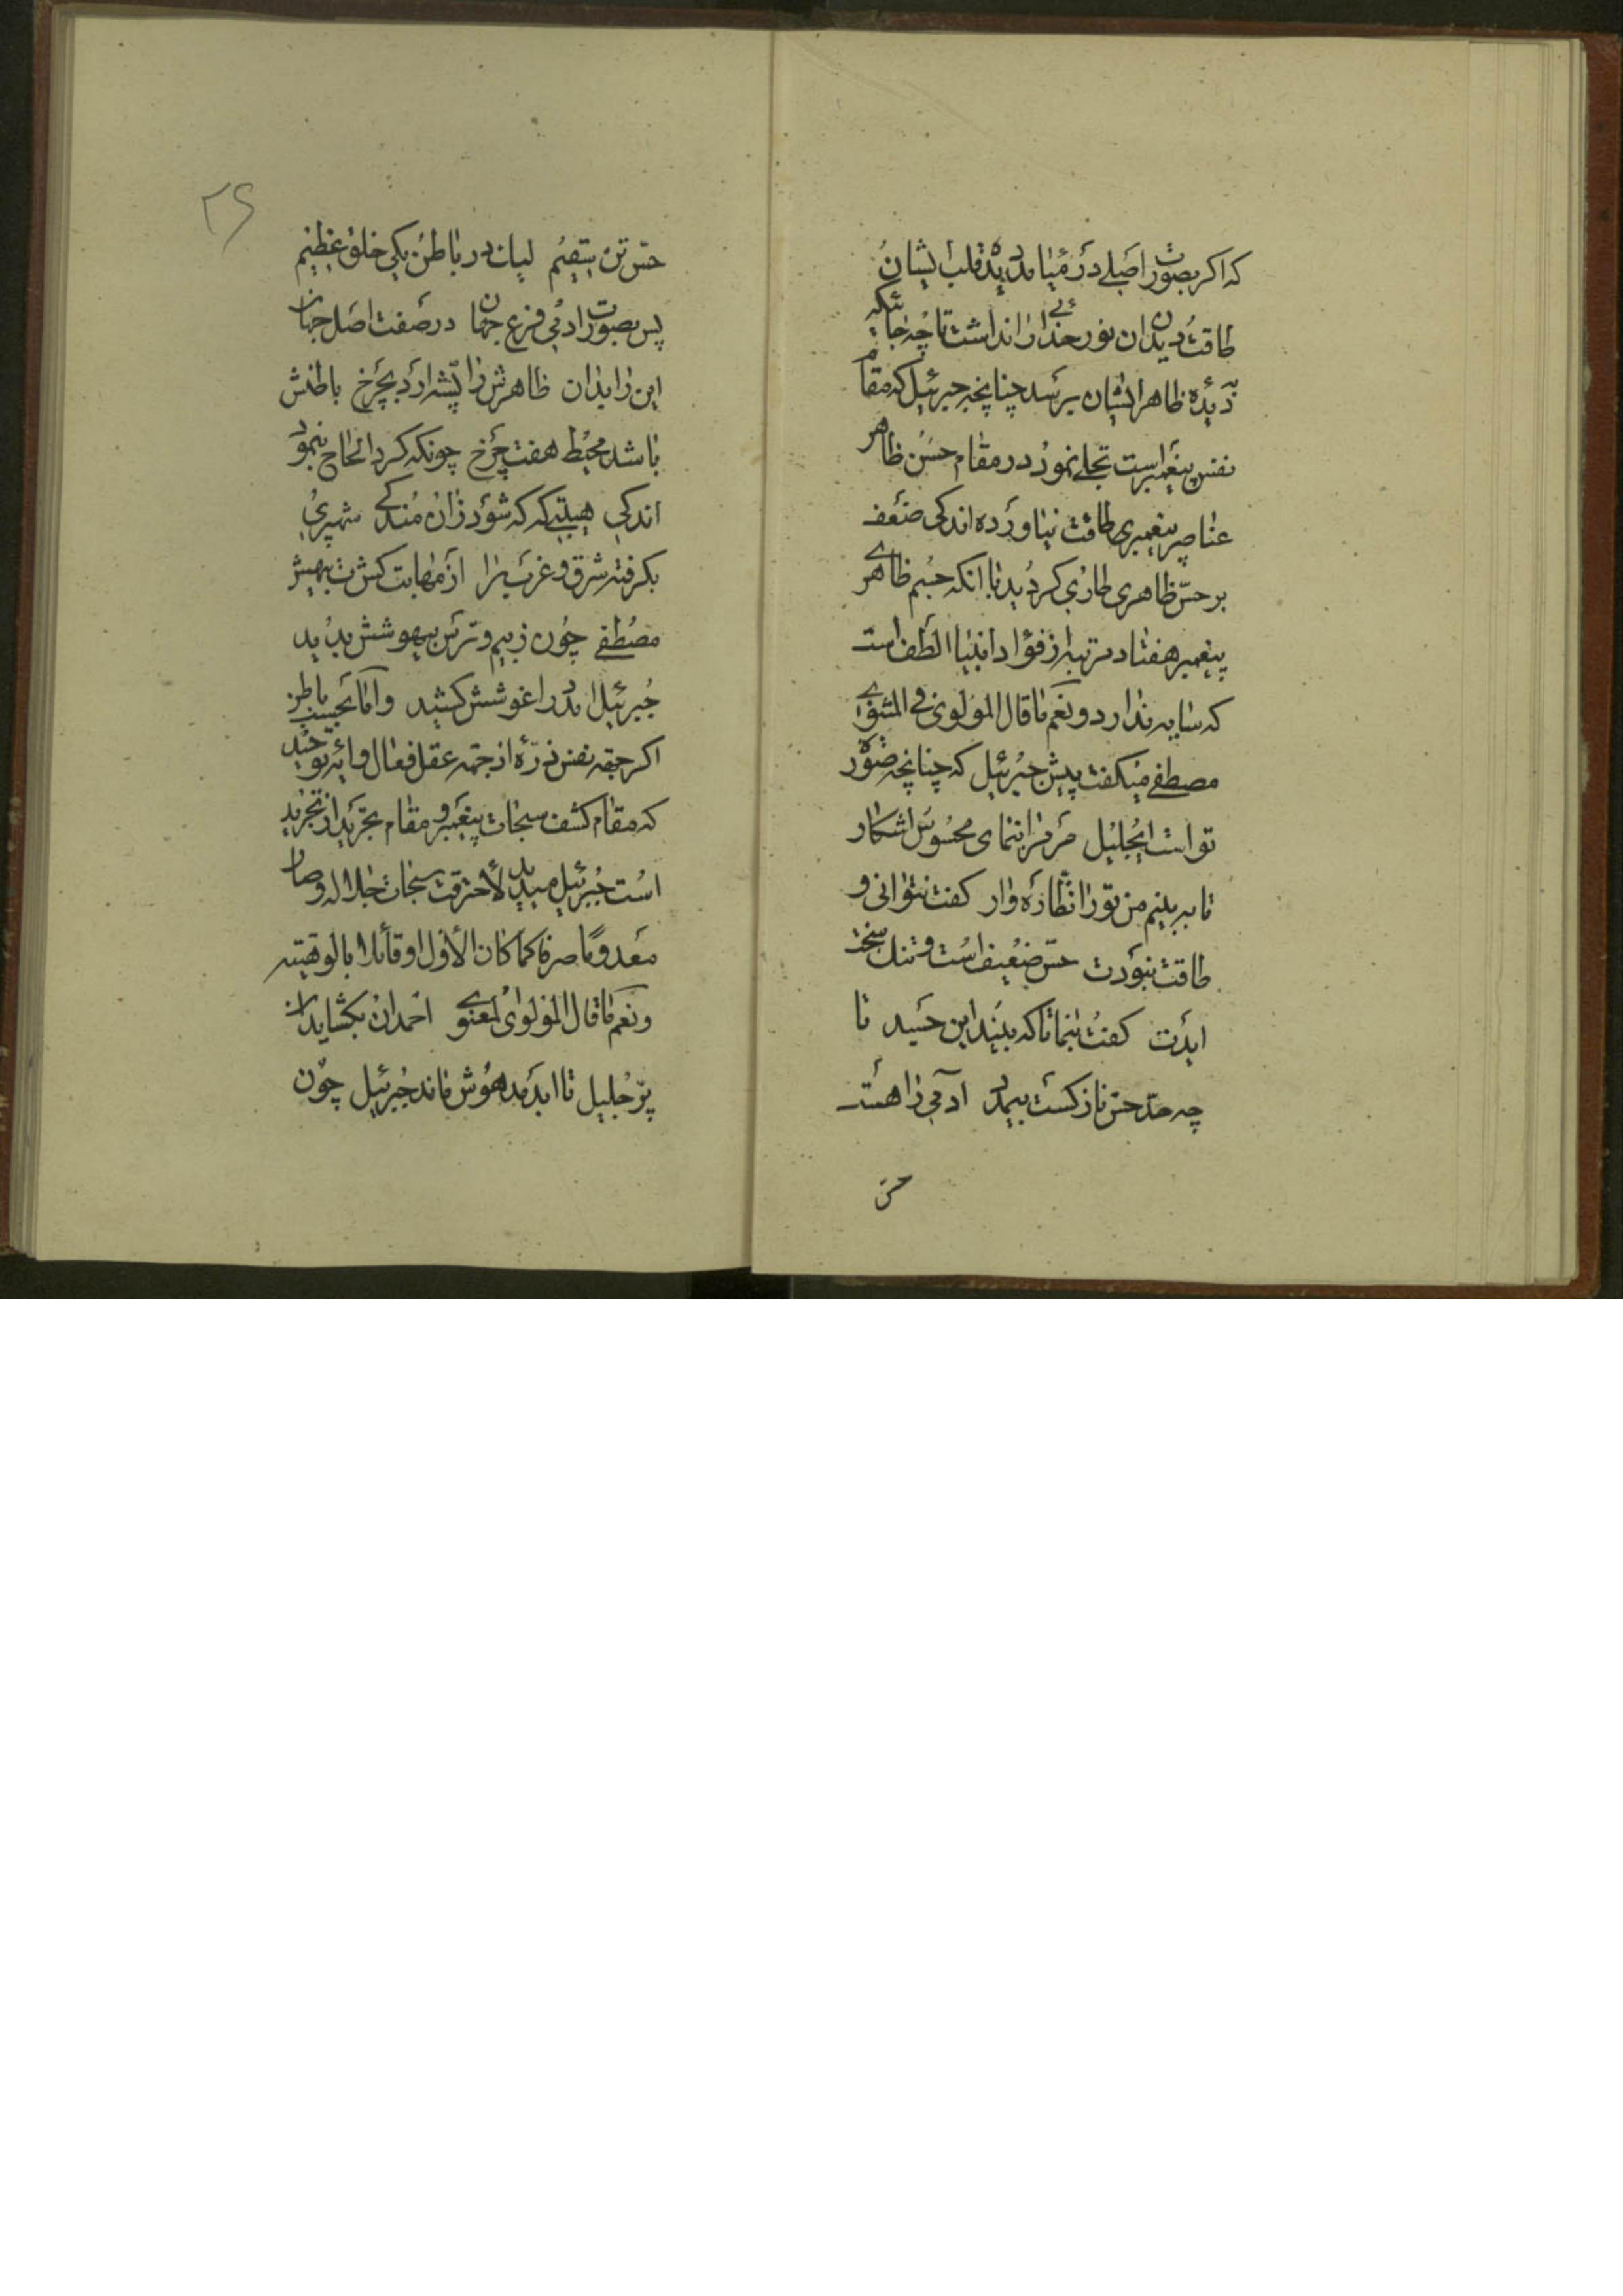 که اکر بصورت اصلی در میامد دیده قلب ایشان
طاقت دیدن ان نور خدائی را نداشت تا چه جائیکه
بدیده ظاهر ایشان برسد چنانچه جبرئیل که مقام
نفس پیغمبر است تجلی نمود در مقام حسن ظاهر
عناصر پیغمبری طاقت نیاورده اندکی ضعف
بر حس ظاهری طاری کردید با انکه جسم ظاهری
پیغمبر هفتاد مرتبه از فؤاد انبیا الطف است
که سایه ندارد و نعم ما قال المولوی فی المثنوی
مصطفی میکفت پیش جبرئیل که چنانچه صورة
تو است ایجلیل مر مرا بنمای محسوس اشکار
تا ببینم من تو را نظاره وار کفت نتوانی و
طاقت نبودت حس ضعیف است و تنک سخت
ایدت کفت بنما تا که بیند این جسد تا
چه حد حس نازکست بیمدد ادمی را هست
حس
۲۶
حس تن سقیم لیک در باطن یکی خلق عظیم
پس بصورت ادمی فرع جهان در صفت اصل جهان
این را بدان ظاهرش را پشه ارد بچرخ باطنش
باشد محیط هفت چرخ چونکه کرد الحاح بنمود
اندکی هیبتی که که شود زان مندکی شهپری
بکرفته شرق و غرب را از مهابت کشت بیهش
مصطفی چون ز بیم و ترس بیهوشش بدید
جبرئیل امد در اغوشش کشید و اما بحسب باطن
اکر جقه نفس ذره از جقه عقل فعال و ایه توحید
که مقام کشف سبحات پیغمبر و مقام تجرید از تجرید
است جبرئیل میدید لأحترقت سبحات جلاله و صار
معدوما صرفا کما کان الأول او قائلا بالوهیته
و نعم ما قال المولوی المعنوی احمد ان بکشاید ان
پر جلیل تا ابد مدهوش ماند جبرئیل چون